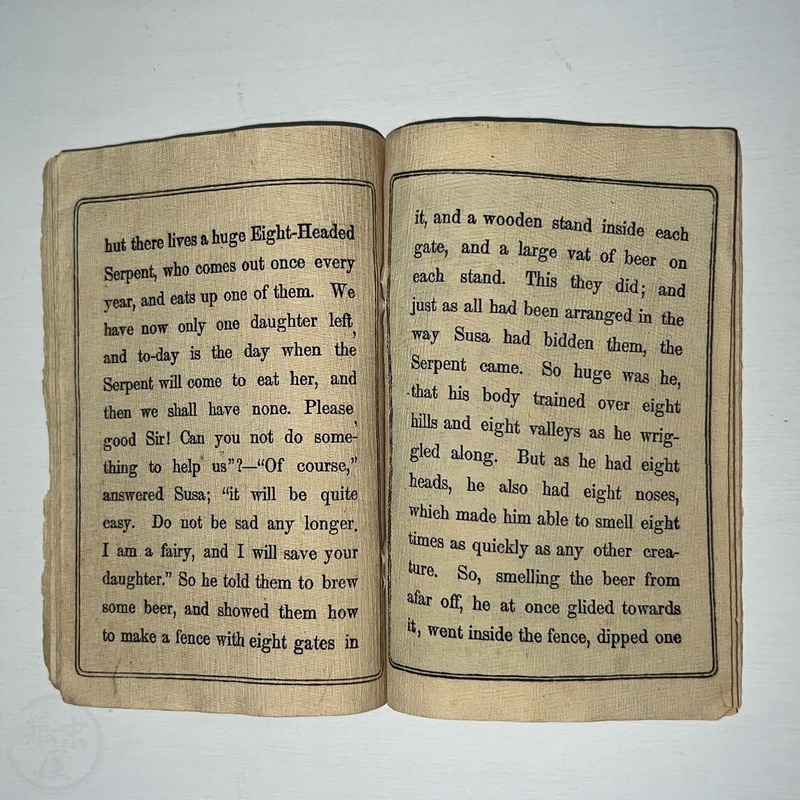 hut there lives a huge Eight-Headed
Serpent, who comes out once every
year, and eats up one of them. We
have now only one daughter left,
and to-day is the day when the
Serpent will come to eat her, and
then we shall have none. Please,
good Sir! Can you not do some-
thing to help us”?—“Of course,”
answered Susa; “it will be quite
easy. Do not be sad any longer.
I am a fairy, and I will save your
daughter.” So he told them to brew
some beer, and showed them how
to make a fence with eight gates in
it, and a wooden stand inside each
gate, and a large vat of beer on
each stand. This they did; and
just as all had been arranged in the
way Susa had bidden them, the
Serpent came. So huge was he,
that his body trained over eight
hills and eight valleys as he wrig-
gled along. But as he had eight
heads, he also had eight noses,
which made him able to smell eight
times as quickly as any other crea-
ture. So, smelling the beer from
afar off, he at once glided towards
it, went inside the fence, dipped one